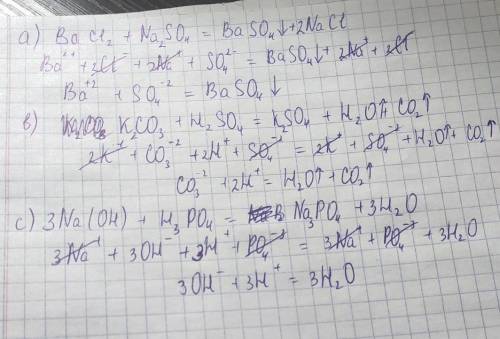 a) BaCl₂ + Na₂SO₄ = BaSO₄↓+2NaCl
Ba²⁺ + 2Cl⁻ + 2Na⁺ + SO₄²⁻ = BaSO₄↓+ 2Na⁺ + 2Cl⁻
Ba⁺² + SO₄⁻² = BaSO₄↓
в) K₂CO₃ + H₂SO₄ = K₂SO₄ + H₂O↑+ CO₂↑
2K⁺ + CO₃⁻² + 2H⁺ + SO₄⁻² = 2K⁺ + SO₄⁻² + H₂O↑ + CO₂↑
CO₃⁻² + 2H⁺ = H₂O↑ + CO₂↑
c) 3Na(OH) + H₃PO₄ = Na₃PO₄ + 3H₂O
3Na⁺ + 3OH⁻ + 3H⁺ + PO₄⁻³ = 3Na⁺ + PO₄⁻³ + 3H₂O
3OH⁻ + 3H⁺ = 3H₂O